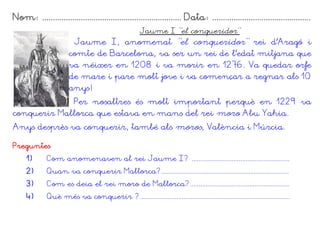 Nom: ............................................ Data: ................................
Jaume I "el conqueridor"
Jaume I, anomenat "el conqueridor" rei d'Aragó i
comte de Barcelona, va ser un rei de l'edat mitjana que
va néixer en 1208 i va morir en 1276. Va quedar orfe
de mare i pare molt jove i va començar a regnar als 10
anys!
Per nosaltres és molt important perquè en 1229 va
conquerir Mallorca que estava en mans del rei moro Abu Yahia.
Anys després va conquerir, també als moros, València i Múrcia.
Preguntes
1) Com anomenaven al rei Jaume I? ................................
2) Quan va conquerir Mallorca? ................................
3) Com es deia el rei moro de Mallorca? ................................
4) Què més va conquerir ? ................................